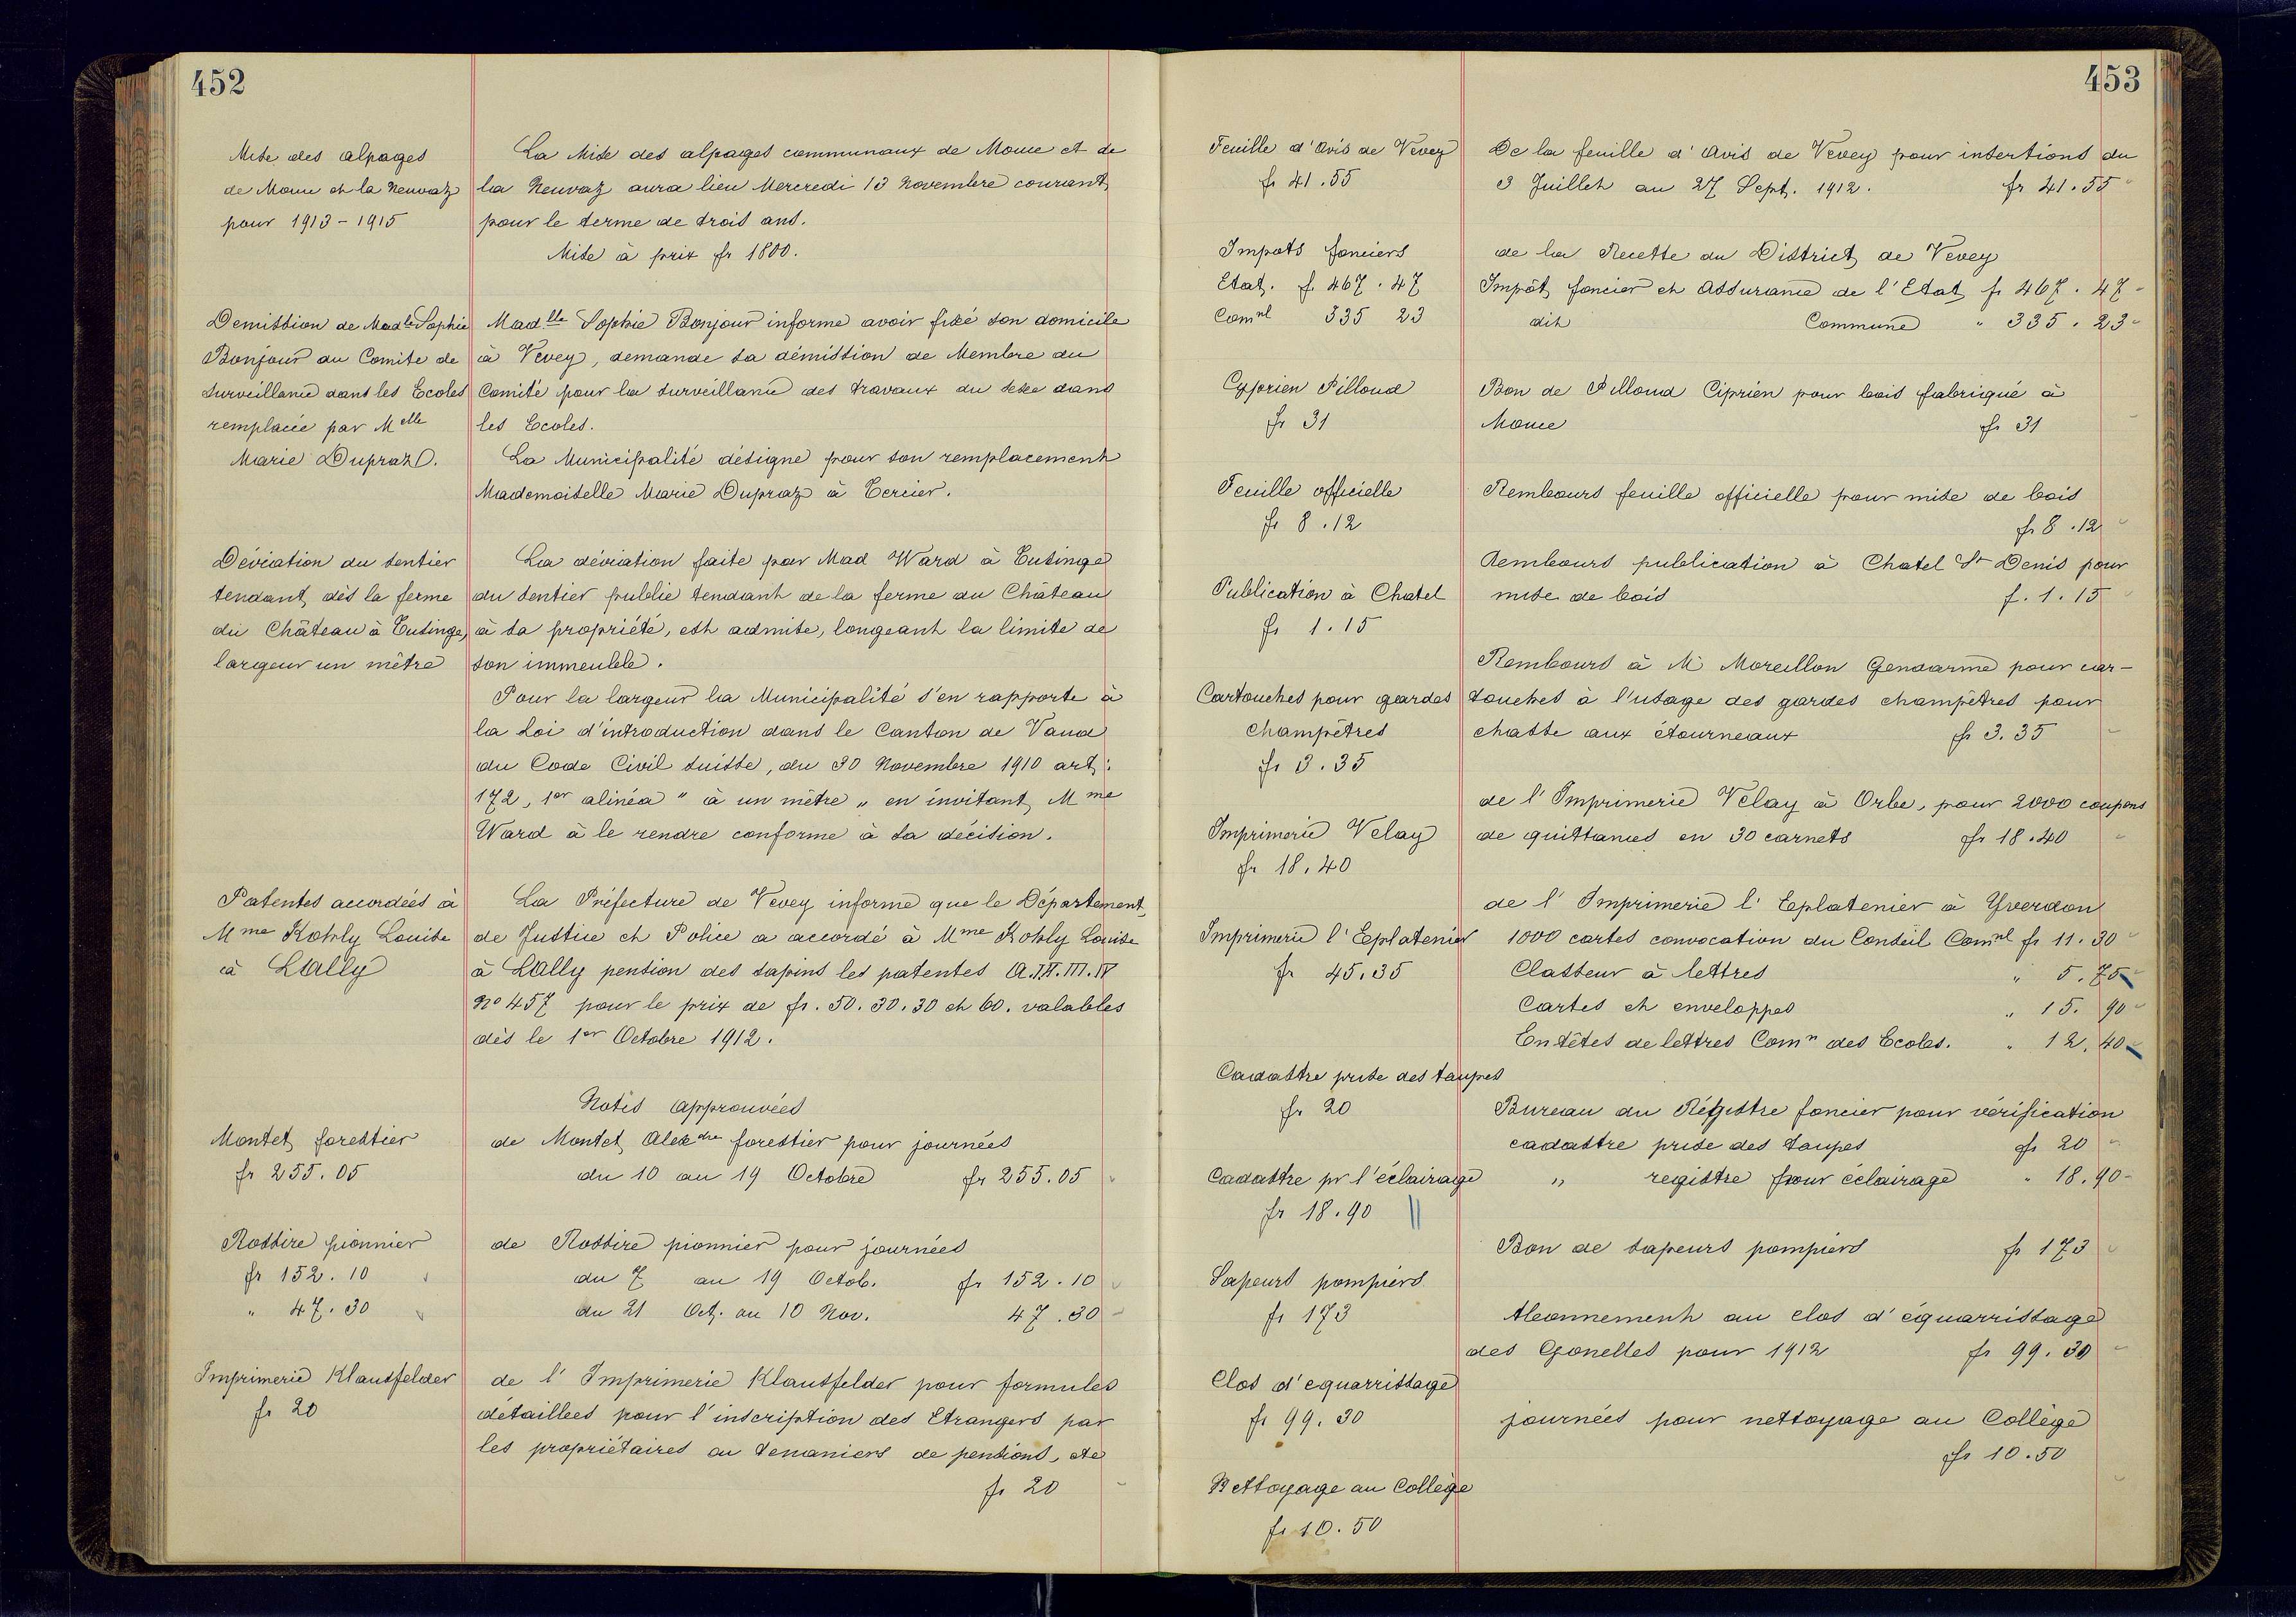 452
Mise des alpages
de Mome et la Neuvaz
pour 1913 - 1915
La Mise des alpages communaux de Mome et de
la Neuvaz aura lieu Mercredi 13 Novembre courant
pour le terme de trois ans.
Mise à prix fr 1800.
Demission de Madlle Sophie
Bonjour au Comite de
surveillance dans les Ecoles
remplacée par Melle
Marie Dupraz.
Madlle Sophie Bonjour informe avoir fixé son domicile
à Vevey, demande sa démission de Membre du
Comité pour la surveillance des travaux du sexe dans
les Ecoles.
La Municipalité désigne pour son remplacement
Mademoiselle Marie Dupraz à Tercier.
Déviation du sentier
tendant dès la ferme
du Château à Cusinge,
largeur un mètre
La déviation faite par Mad Ward à Cusinge
du sentier public tendant de la ferme du Château
à sa propriété, est admise, longeant la limite de
son immeuble.
Pour la largeur la Municipalité s'en rapporte à
la Loi d'introduction dans le Canton de Vaud
du Code Civil suisse, du 30 Novembre 1910 art:
172, 1er alinéa " à un mètre " en invitant Mme
Ward à le rendre conforme à sa décision.
Patentes accordées à
Mme Kohly Louise
à Lally
La Préfecture de Vevey informe que le Département
de Justice et Police a accordé à Mme Kohly Louise
à Lally pension des sapins les patentes A.II.III.IV
No 457 pour le prix de fr. 50. 30. 30 et 60. valables
dès le 1er Octobre 1912.
Notes approuvées
Montet forestier
fr 255.05
de Montet Alexdre forestier pour journées
du 10 au 19 Octobre fr 255.05
Rossire pionnier
fr 152.10
" 47.30
de Rossire pionnier pour journées
du 7 au 19 Octob. fr 152.10
du 21 Oct. au 10 Nov. 47.30
Imprimerie Klausfelder
fr 20
de l'Imprimerie Klausfelder pour formules
détaillees pour l'inscription des Etrangers par
les propriétaires ou tenanciers de pensions, etc
fr 20
453
Feuille d'Avis de Vevey
fr 41.55
De la feuille d'Avis de Vevey pour insertions du
3 Juillet au 27 Sept. 1912. fr 41.55
Impots fonciers
Etat. f. 467.47
Comnl 335 23
de la Recette du District de Vevey
Impôt foncier et Assurance de l'Etat fr 467.47
dit Commune " 335.23
Cyprien Pilloud
fr 31
Bon de Pilloud Ciprien pour bois fabriqué à
Mome fr 31
Feuille officielle
fr 8.12
Rembours feuille officielle pour mise de bois
fr 8.12
Publication à Chatel
fr 1.15
Rembours publication à Chatel St Denis pour
mise de bois f. 1.15
Cartouches pour gardes
champêtres
fr 3.35
Rembours à M. Moreillon Gendarme pour car-
touches à l'usage des gardes champêtres pour
chasse aux étourneaux fr 3.35
Imprimerie Velay
fr 18.40
de l'Imprimerie Velay à Orbe, pour 2000 coupons
de quittances en 30 carnets fr 18.40
Imprimerie l'Eplatenier
fr 45.35
de l'Imprimerie l'Eplatenier à Yverdon
1000 cartes convocation du Conseil Comnl fr 11.30
Classeur à lettres " 5.75
Cartes et enveloppes " 15.90
Entêtes de lettres Comn des Ecoles. " 12.40
Cadastre prise des taupes
fr 20
Bureau du Régistre foncier pour vérification
cadastre prise des taupes fr 20
Cadastre pr l'éclairage
fr 18.90
" registre pour éclairage " 18.90
Sapeurs pompiers
fr 173
Bon de sapeurs pompiers fr 173
Clos d'equarrissage
fr 99.30
Abonnement au clos d'équarrissage
des Gonelles pour 1912 fr 99.30
Nettoyage au Collège
fr 10.50
journées pour nettoyage au Collège
fr 10.50